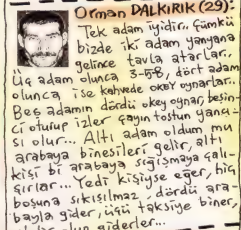 Orhan DALKIRIK (29):
Tek adam iyidir.. Çünkü
bizde iki adam yanyana
gelince tavla atarlar..
Üç adam olunca 3-5-8, dört adam
olunca ise kahvede okey oynarlar..
Beş adamın dördü okey oynar, beşin-
ci oturup izler çayın tostun yancı-
sı olur... Altı adam oldun mu
arabaya binesileri gelir, altı
kişi bi arabaya sığışmaya çalı-
şırlar... Yedi kişiyse eğer, hiç
boşuna sıkışılmaz dördü ara-
bayla gider, üçü taksiye biner,
giderler...